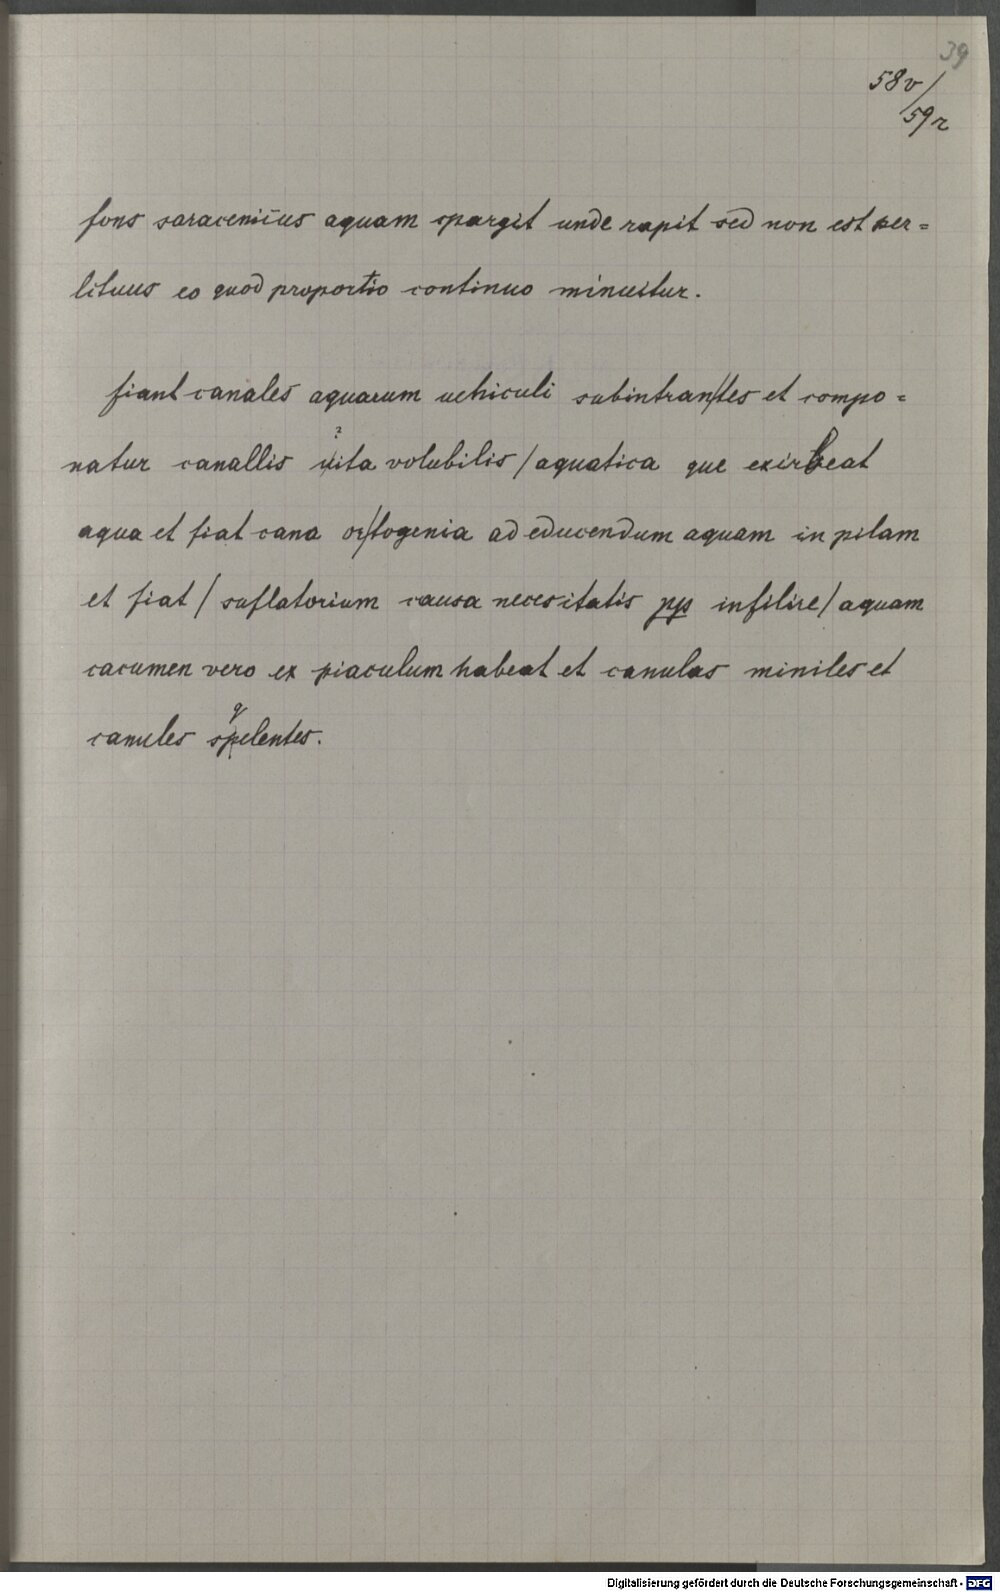 39
58v/
59r
fons saracenicus aquam spargit unde rapit sed non est per=
lituus eo quod proportio continuo minuitur.
fiant canales aquarum uehiculi subintran/tes et compo=
natur canallis uita volubilis / aquatica que exirbeat
?
aqua et fiat cana or/togenia ad educendum aquam in pilam
et fiat / suflatorium causa necesitatis pp infilire / aquam
cacumen vero ex piaculum habeat et canulas miniles et
q
canules spelentes.
Digitalisierung gefördert durch die Deutsche Forschungsgemeinschaft - DFG